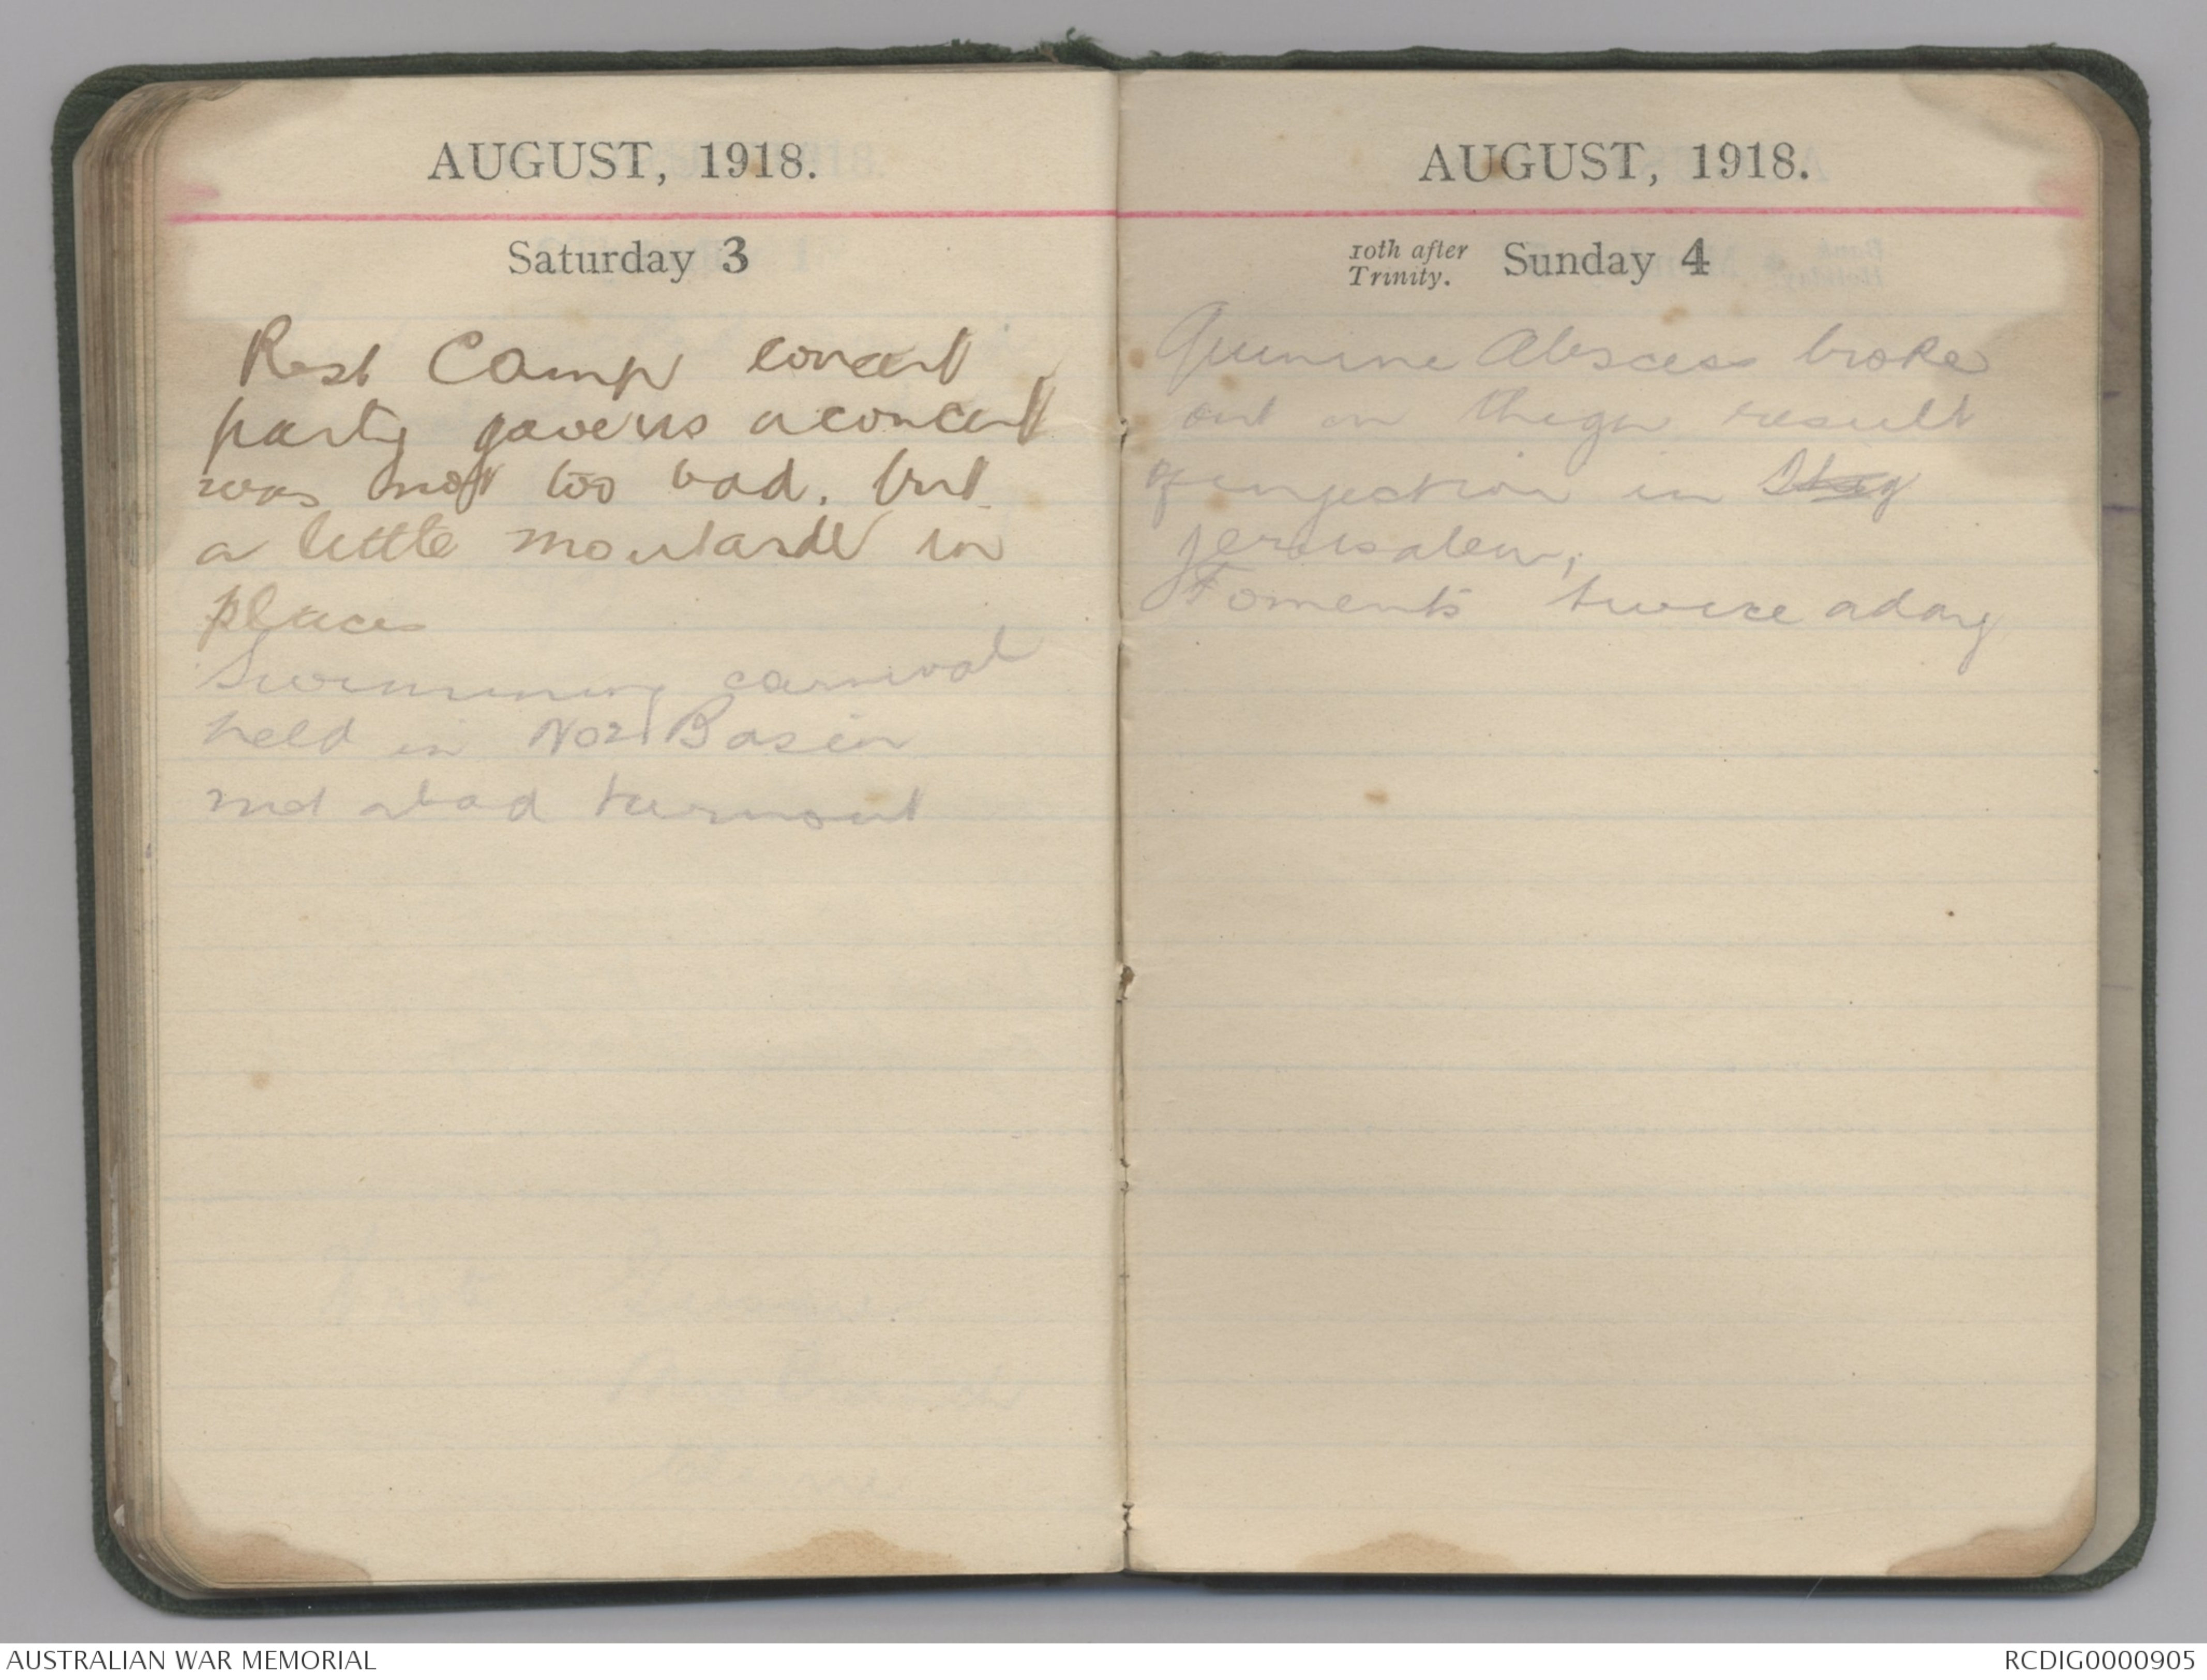 AUGUST, 1918.
Saturday 3
Rest Camp concert
party gave us a concert
was not too bad, but
a little moutarde in
places
Swimming carnival
held in No 2 Basin
not a bad turnout
AUGUST, 1918.
10th after Trinity. Sunday 4
Quinine Abscess broke
out on thigh result
of injection in
Jerusalem;
Foments twice a day
AUSTRALIAN WAR MEMORIAL
RCDIG0000905